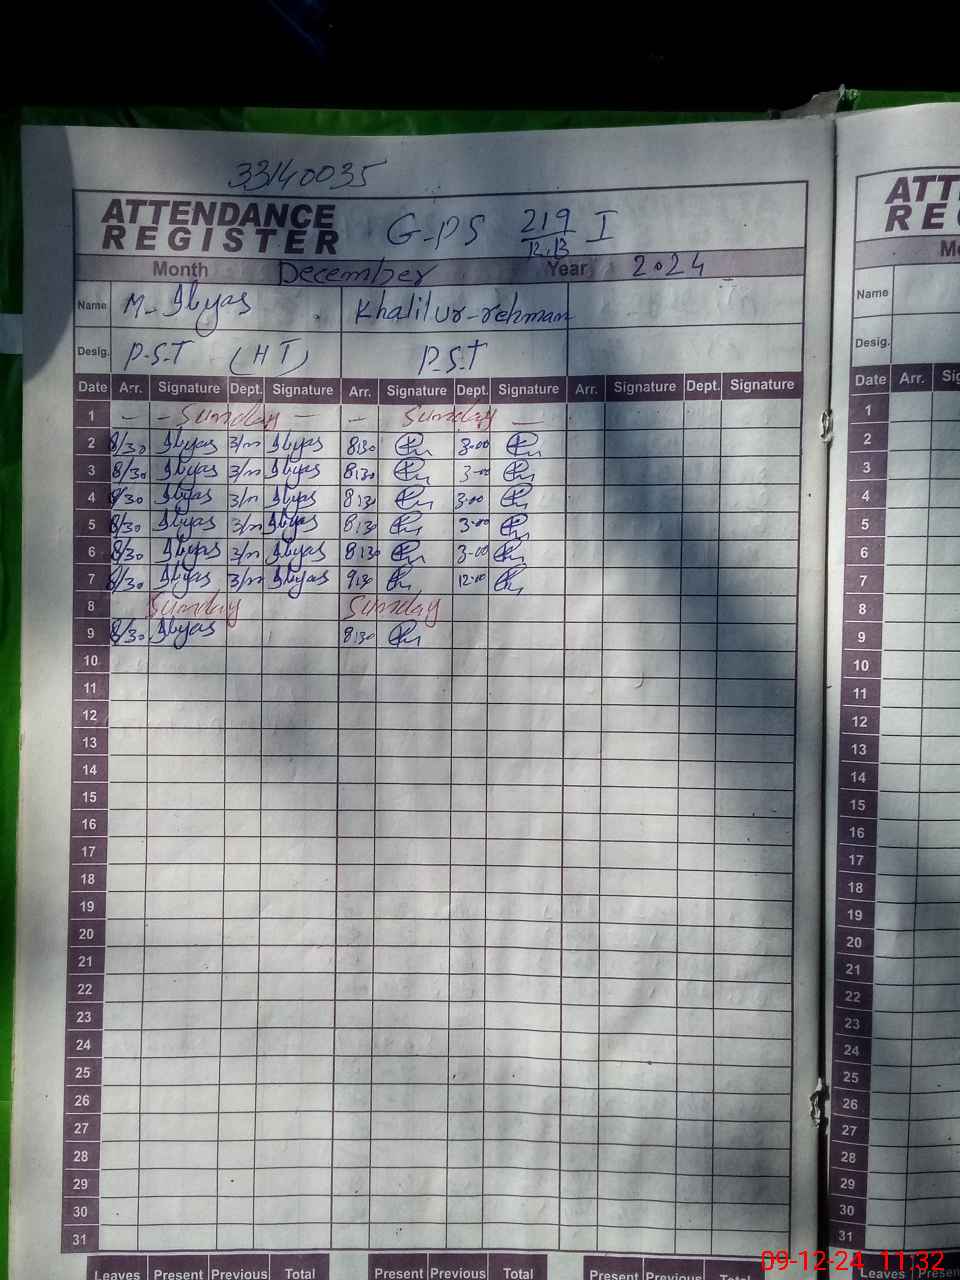 33140035
ATTENDANCE REGISTER G-PS 219/R.B I
Month December Year 2024
Name M. Ilyas Khalilur-rehman
Desig. P.S.T (HT) P.S.T
Date Arr. Signature Dept. Signature Arr. Signature Dept. Signature Arr. Signature Dept. Signature
1 - - Sunday - - Sunday -
2 8/30 Ilyas 3/n Ilyas 8:30 3-00
3 8/30 Ilyas 3/n Ilyas 8:30 3-00
4 8/30 Ilyas 3/n Ilyas 8:30 3-00
5 8/30 Ilyas 3/n Ilyas 8:30 3-00
6 8/30 Ilyas 3/n Ilyas 8:30 3-00
7 8/30 Ilyas 3/n Ilyas 9:30 12-00
8 Sunday Sunday
9 8/30 Ilyas 8:30
10
11
12
13
14
15
16
17
18
19
20
21
22
23
24
25
26
27
28
29
30
31
Leaves Present Previous Total Present Previous Total Present Previous Total
ATT
RE
Name
Desig.
Date Arr.
1
2
3
4
5
6
7
8
9
10
11
12
13
14
15
16
17
18
19
20
21
22
23
24
25
26
27
28
29
30
31
Leaves
09-12-24 11:32